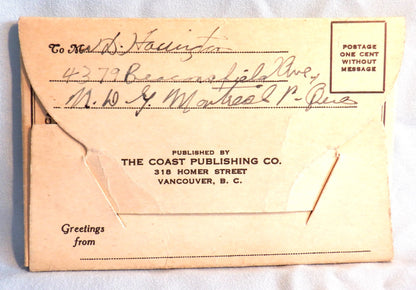 To M
4379 Beaconsfield Ave,
N. D. G. Montreal P. Que
POSTAGE
ONE CENT
WITHOUT
MESSAGE
PUBLISHED BY
THE COAST PUBLISHING CO.
318 HOMER STREET
VANCOUVER, B. C.
Greetings
from